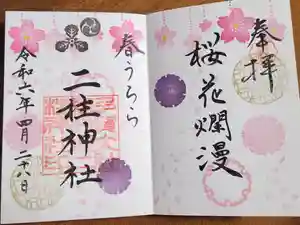 奉拝
桜花爛漫
春うらら
二柱神社
令和六年四月二十八日